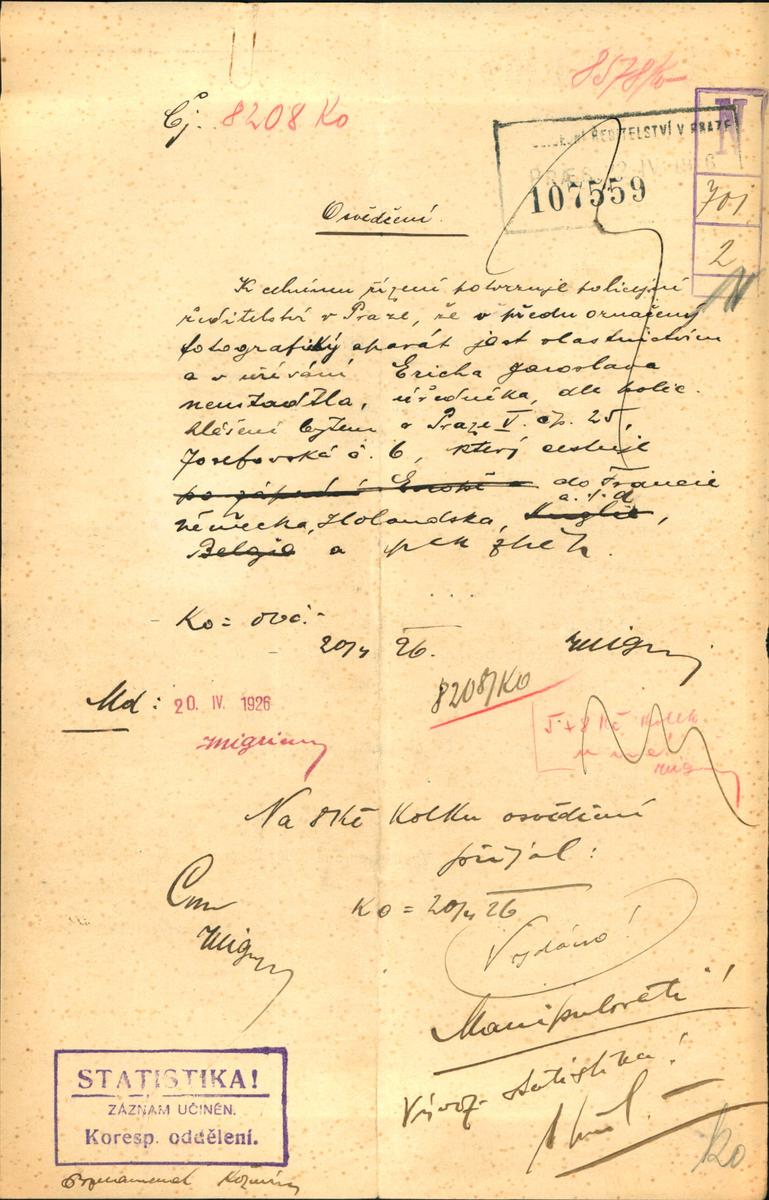 8578/Ko
Čj. 8208 Ko
ŘEDITELSTVÍ V PRAZE
PRAES. IV. 1926
107559
N
701
2
Osvědčení.
K celnímu řízení potvrzuje policejní
ředitelství v Praze, že v předu označený
fotografický aparát jest vlastnictvím
a v užívání Ericha Jaroslava
Neustadtla, úředníka, dle polic.
hlášení bytem v Praze V. čp. 25,
Josefovská č. 6, který cestuje
po západní Evropě do Francie
a. t. d
Německa, Holandska, Anglie,
Belgie a zpět.
Ko = ově:
20/4 26.
8208/Ko
Md: 20. IV. 1926
5+8 Kč kolek
Na 8 Kč kolku osvědčení
přijal:
Ko = 20/4 26
Vydáno!
Manipulováti!
Vývoz. statistika!
STATISTIKA!
ZÁZNAM UČINĚN.
Koresp. oddělení.